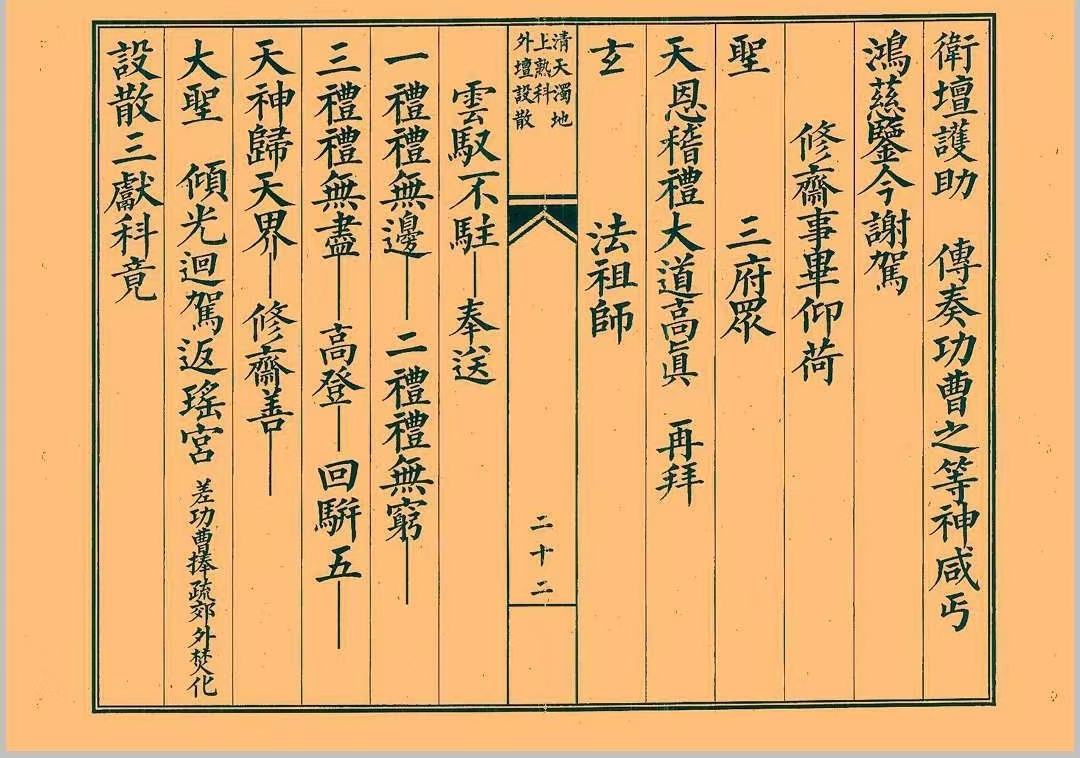 衛壇護助　傳奏功曹之等神咸丐
鴻慈鑒今謝駕
修齋事畢仰荷
聖　三府眾
天恩稽禮大道高眞　再拜
玄　法祖師
清天濁地
上熟科
外壇設散
二十二
雲馭不駐—奉送
一禮禮無邊—二禮禮無窮—
三禮禮無盡—高登—回騈五—
天神歸天界—修齋善—
大聖　傾光迴駕返瑤宮 差功曹捧疏郊外焚化
設散三獻科竟